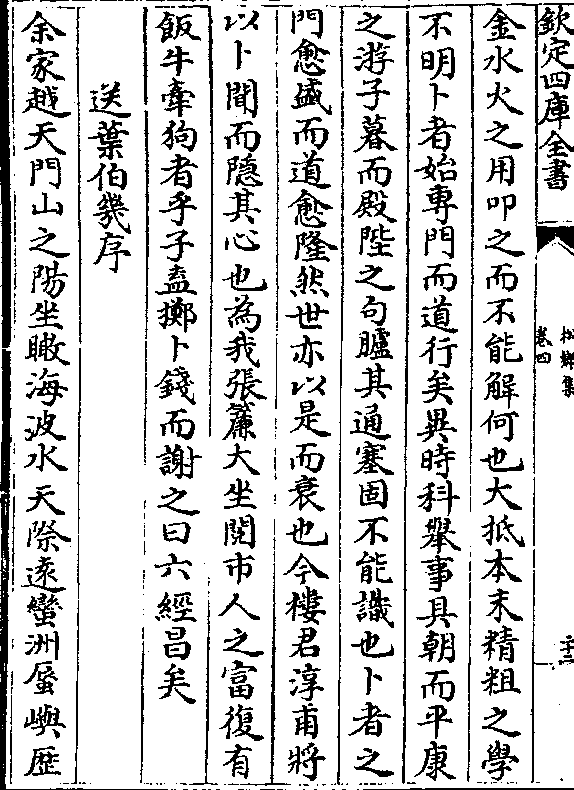 欽定四庫全書
松鄉集
卷四
二十二
金水火之用叩之而不能解何也大抵本末精粗之學
不明卜者始專門而道行矣異時科舉事具朝而平康
之游子暮而殿陛之句臚其通塞固不能識也卜者之
門愈盛而道愈隆然世亦以是而衰也今樓君淳甫將
以卜聞而隱其心也為我張簾大坐閱市人之富復有
飯牛牽狗者乎子盍擲卜錢而謝之曰六經昌矣
送葉伯幾序
余家越天門山之陽坐瞰海波水天際遠蠻洲蜃嶼歷